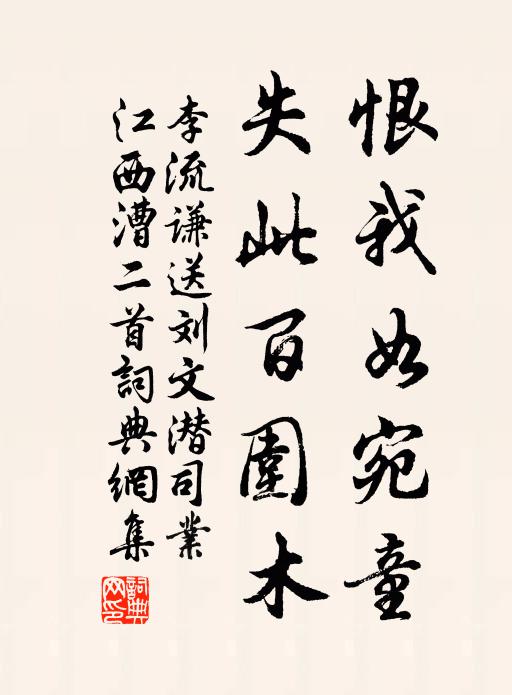 恨我如宛童
失此百圍木
李流谦送刘文潜司業
江西漕二首詞典網集